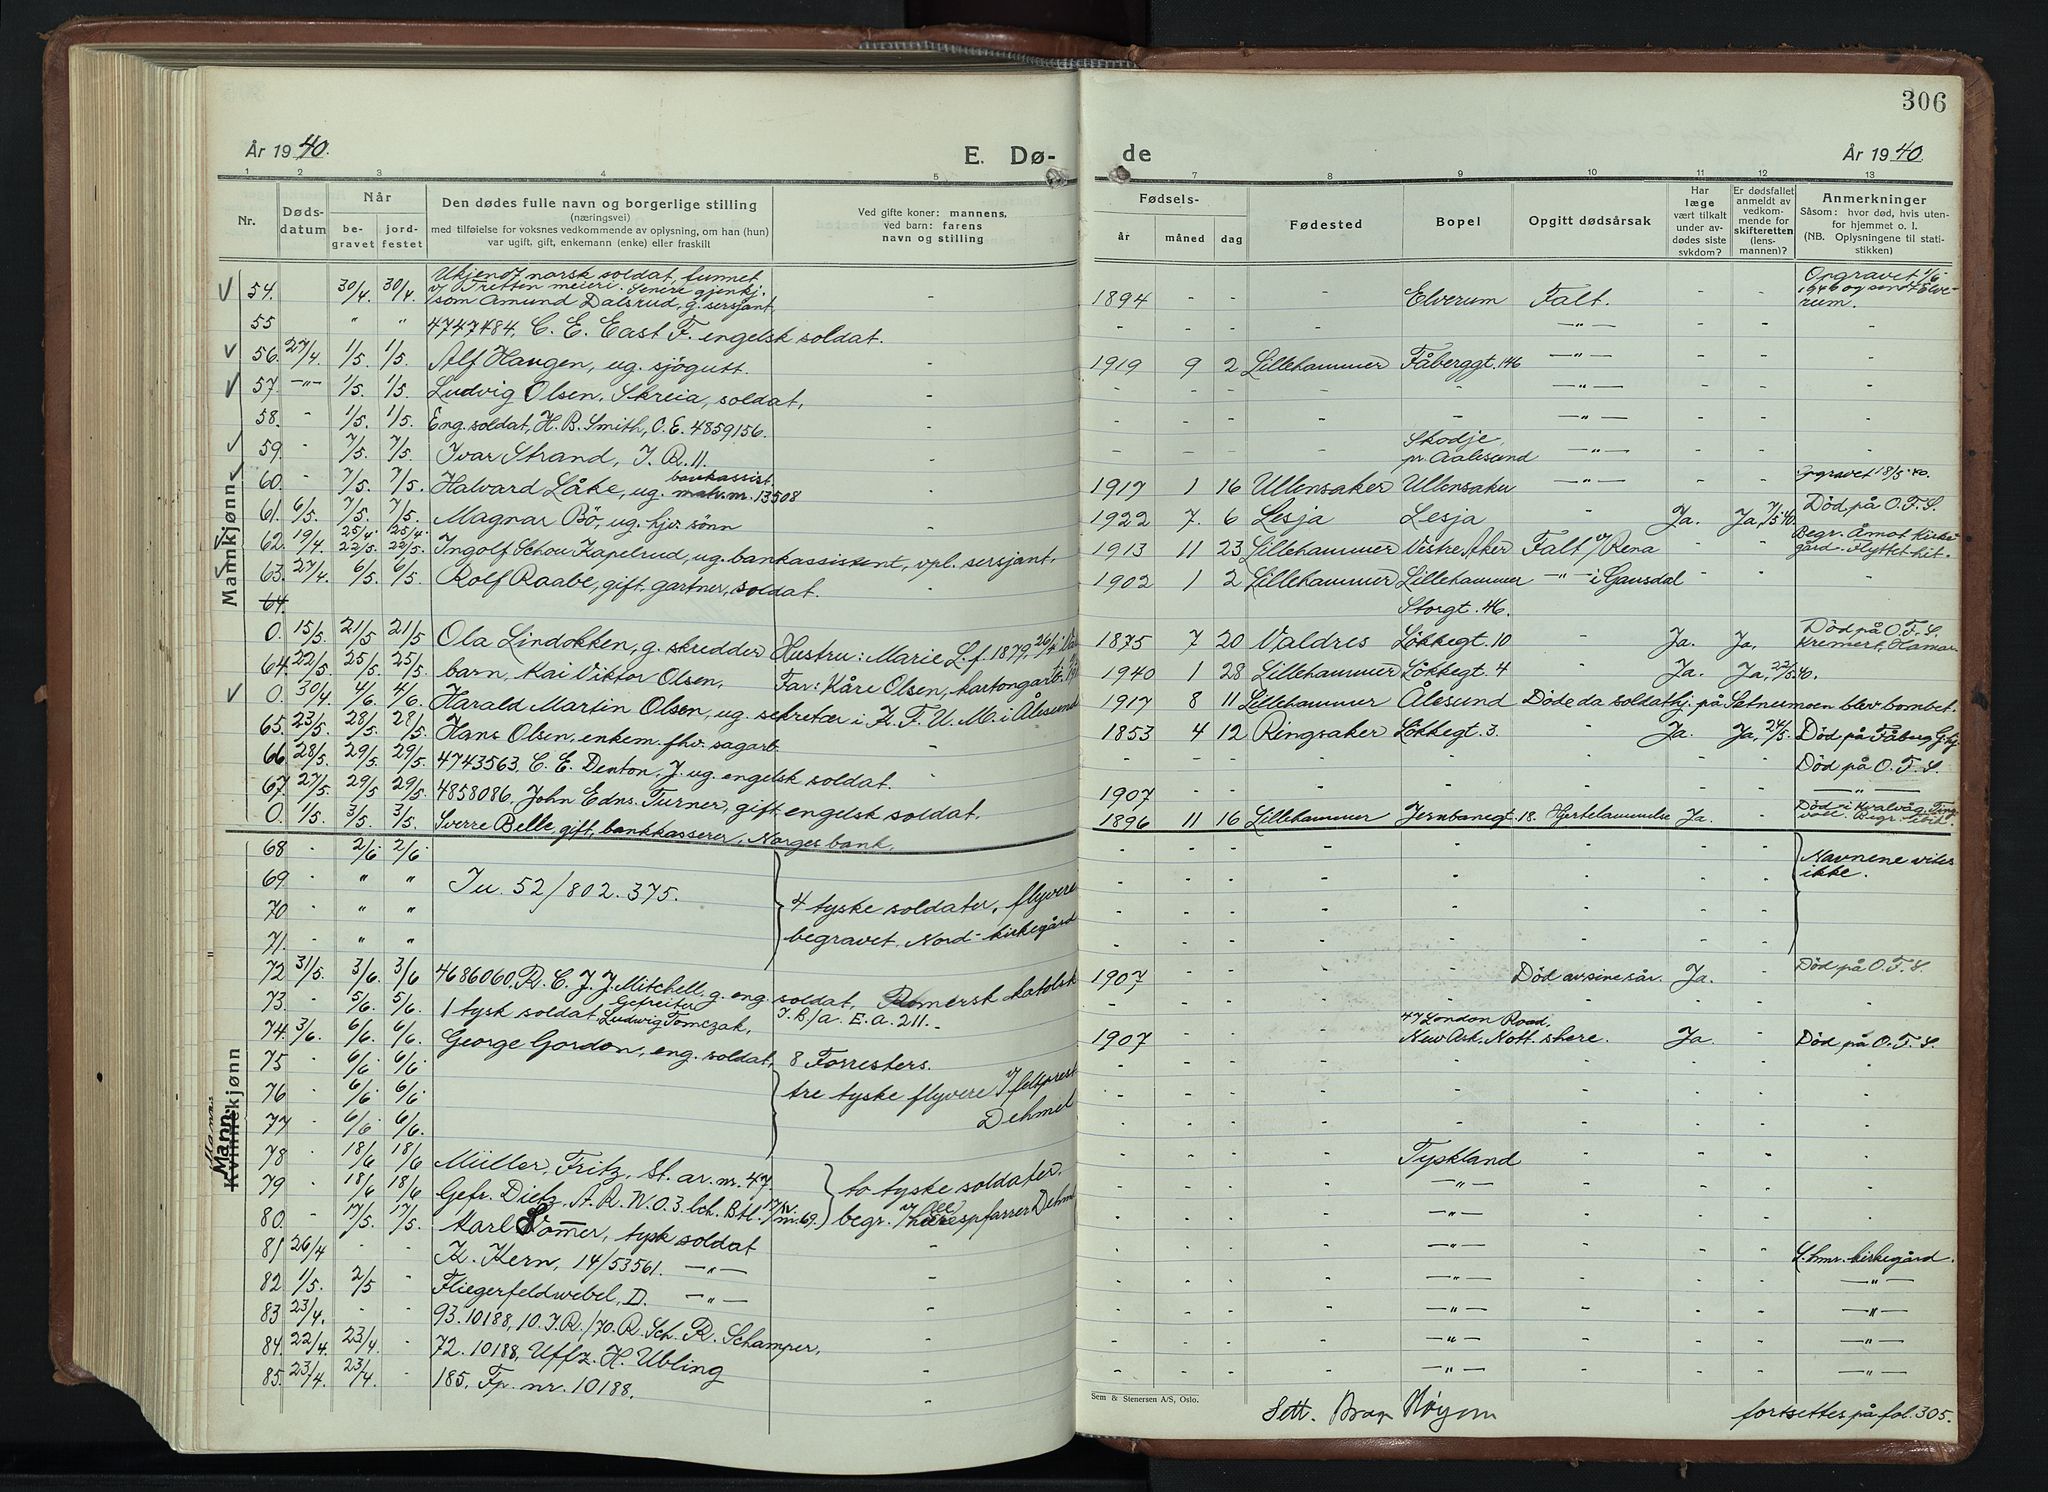 306
År 1940.
E. Dø-
de
År 1940
1 2 3 4 5
7 8 9 10 11 12 13
Nr.
Døds-
datum
Når
be-
gravet
jord-
festet
Den dødes fulle navn og borgerlige stilling
(næringsvei)
med tilføielse for voksnes vedkommende av oplysning, om han (hun)
var ugift, gift, enkemann (enke) eller fraskilt
Ved gifte koner: mannens,
ved barn: farens
navn og stilling
Fødsels-
år måned dag
Fødested
Bopel
Opgitt dødsårsak
Har
læge
vært tilkalt
under av-
dødes siste
sykdom?
Er dødsfallet
anmeldt av
vedkom-
mende for
skifteretten
(lens-
mannen)?
Anmerkninger
Såsom: hvor død, hvis uten-
for hjemmet o. l.
(NB. Oplysningene til stati-
stikken)
Mannkjønn
54. 30/4. 30/4. Ukjendt norsk soldat, funnet
v/ Tretten meieri. Senere gjenkj.
som Amund Dalsrud, g. sersjant. - 1894 - - - Elverum Falt. - - Opgravet 1/6
1946 og sendt Elve-
rum.
55 " " 4747484, C. E. East F. engelsk soldat. - - - - - -"- - - -
56. 27/4. 1/5. 1/5. Alf Haugen, ug. sjögutt. - 1919 9 2 Lillehammer Fåberggt. 146 -"- - - -
57. -"- 1/5. 1/5. Ludvig Olsen, Skreia, soldat, - - - - - - -"- - - -
58. - 1/5. 1/5. Eng. soldat, H. B. Smith, C. E. 4859156. - - - - - - -"- - - -
59. - 7/5. 7/5. Ivar Strand, I. R. 11. - - - - - Skodje,
pr. Aalesund -"- - - -
60. - 7/5. 7/5. Halvard Låke, ug. bankassist.
matr. nr. 13508 1917 1 16 Ullensaker Ullensaker -"- - - Opgravet 18/5-40.
61. 6/5. 7/5. 7/5. Magnar Bö, ug. hjv. sönn - 1922 7. 6 Lesja Lesja - Ja. Ja, 7/5 40. Död på O. F. S.
62. 19/4. 25/4. 25/4.
22/5. 22/5. Ingolf Schou Kapelrud, ug. bankassistent, vpl. sersjant. 1913 11 23 Lillehammer Vestre Aker Falt v/ Rena - - Begr. Åmot kirke-
gård. Flyttet hit.
63. 27/4. 6/5. 6/5. Rolf Raabe, gift, gartner, soldat. - 1902 1 2 Lillehammer Lillehammer -"- i Gausdal - - -
64. Storgt. 46.
0. 15/5. 21/5 21/5 Ola Lindokken, g. skredder Hustru: Marie L. f. 1879, 26/4 i 1875 7 20 Valdres Lökkegt. 10 - Ja. Ja, Död på O. F. S.
Kremert, Hamar
64. 22/5. 25/5. 25/5. barn, Kai Viktor Olsen. Far: Kåre Olsen, kartongarb. 1940 1 28 Lillehammer Lökkegt. 4 Ja. Ja, 22/5 40.
0. 30/4. 4/6. 4/6. Harald Martin Olsen, ug. sekretær i K. F. U. M. i Ålesund 1917 8 11 Lillehammer Ålesund Døde da soldathj. på Setnesmoen blev bombet.
65. 23/5. 28/5. 28/5. Hans Olsen, enkem. fhv. sagarb. - 1853 4 12 Ringsaker Lökkegt. 3. Ja. Ja, 24/5. Död på Fåberg G.hj.
66. 28/5. 29/5. 29/5. 4743563. C. E. Denton, J. ug. engelsk soldat. - - - - - - - - - Död på O. F. S.
67. 27/5. 29/5. 29/5. 4858086. John Edns. Turner, gift, engelsk soldat. 1907 - - - - - - - -"-
0. 1/5. 3/5. 3/5. Sverre Belle, gift, bankkasserer, Norges bank. 1896 11 16 Lillehammer Jernbanegt. 18. Hjertelammelse Ja. - Död i Kvalvåg, Ting-
voll. Begr. ibid.
Manns
Mann.
Kvinnekjønn
68 - 2/6 2/6 Navnene vites
ikke.
69 - " " Ju. 52/802. 375.
70 - " " 4 tyske soldater, flyvere
71. - " " begravet. Nord-kirkegård
72 31/5. 3/6. 3/6 4686060. R. C. J. J. Mitchell, g. eng. soldat, Romersk katolsk 1907 - - - - Död av sine sår. Ja. Död på O. F. S.
73. - 5/6. 5/6. 1 tysk soldat, Gefreiter
Ludwig Tomczak, I. B./a. E. a. 211. -
74. 3/6. 6/6. 6/6. George Gordon, eng. soldat, 8 Forresters. 1907 - - - 47 London Road,
New Ark, Nott. shere. Ja Död på O. F. S.
75 - 6/6. 6/6.
76 - 6/6. 6/6. tre tyske flyvere v/ feltprest
77 - 6/6. 6/6. Dehmel
78 - 18/6 18/6 Müller, Fritz, St. ar. nr. 47 Tyskland
79 - 18/6 18/6 Gefr. Dietz, A. R. W. O. 3. Sch. Btl. to tyske soldater. -"-
80. - 17/5. 17/5. Karl Vomer, tysk soldat begr. v/ herrespfarrer Dehmel -"-
81 26/4 - - K. Kern, 14/53561. -"- - -"- L.hmr. kirkegård.
82. 1/5. 2/5 - Fliegerfeldwebel, D. -"- - -"- -"-
83 23/4. - - 93. 10188, 10. I. R./70. R. Sch. R. Schamper, - -"- -"-
84. 22/4. 23/4. - 72. 10188, Uffz. H. Ubling - -"- -"-
85. 23/4. 23/4. - 185, Fp. nr. 10188. - -"- -"-
Sem & Stenersen A/S, Oslo.
Sett.
fortsettes på fol. 305.